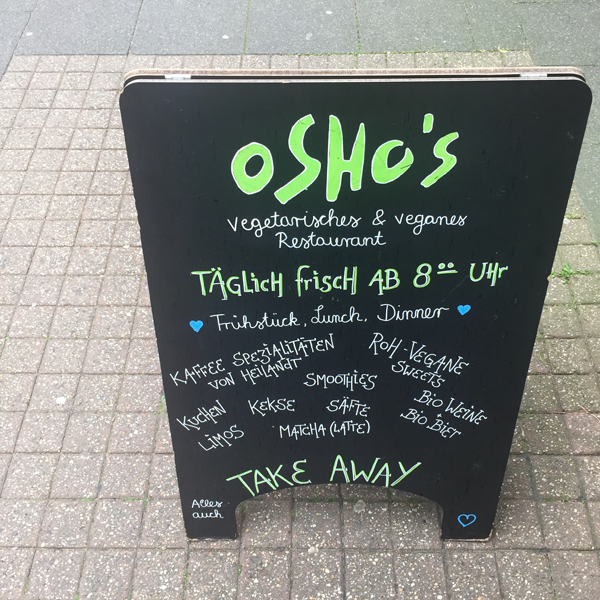 OSHO's
vegetarisches & veganes
Restaurant
TÄGLICH frisch AB 8⁰⁰ UHr
Frühstück, Lunch, Dinner
KAFFEE SPEZIALITÄTEN
VON HEILANDT
ROH-VEGANE
SWEETS
SMOOTHIES
KUCHEN
KEKSE
SÄFTE
BIO WEINE
+
BIO BIER
LIMOS
MATCHA (LATTE)
TAKE AWAY
Alles
auch